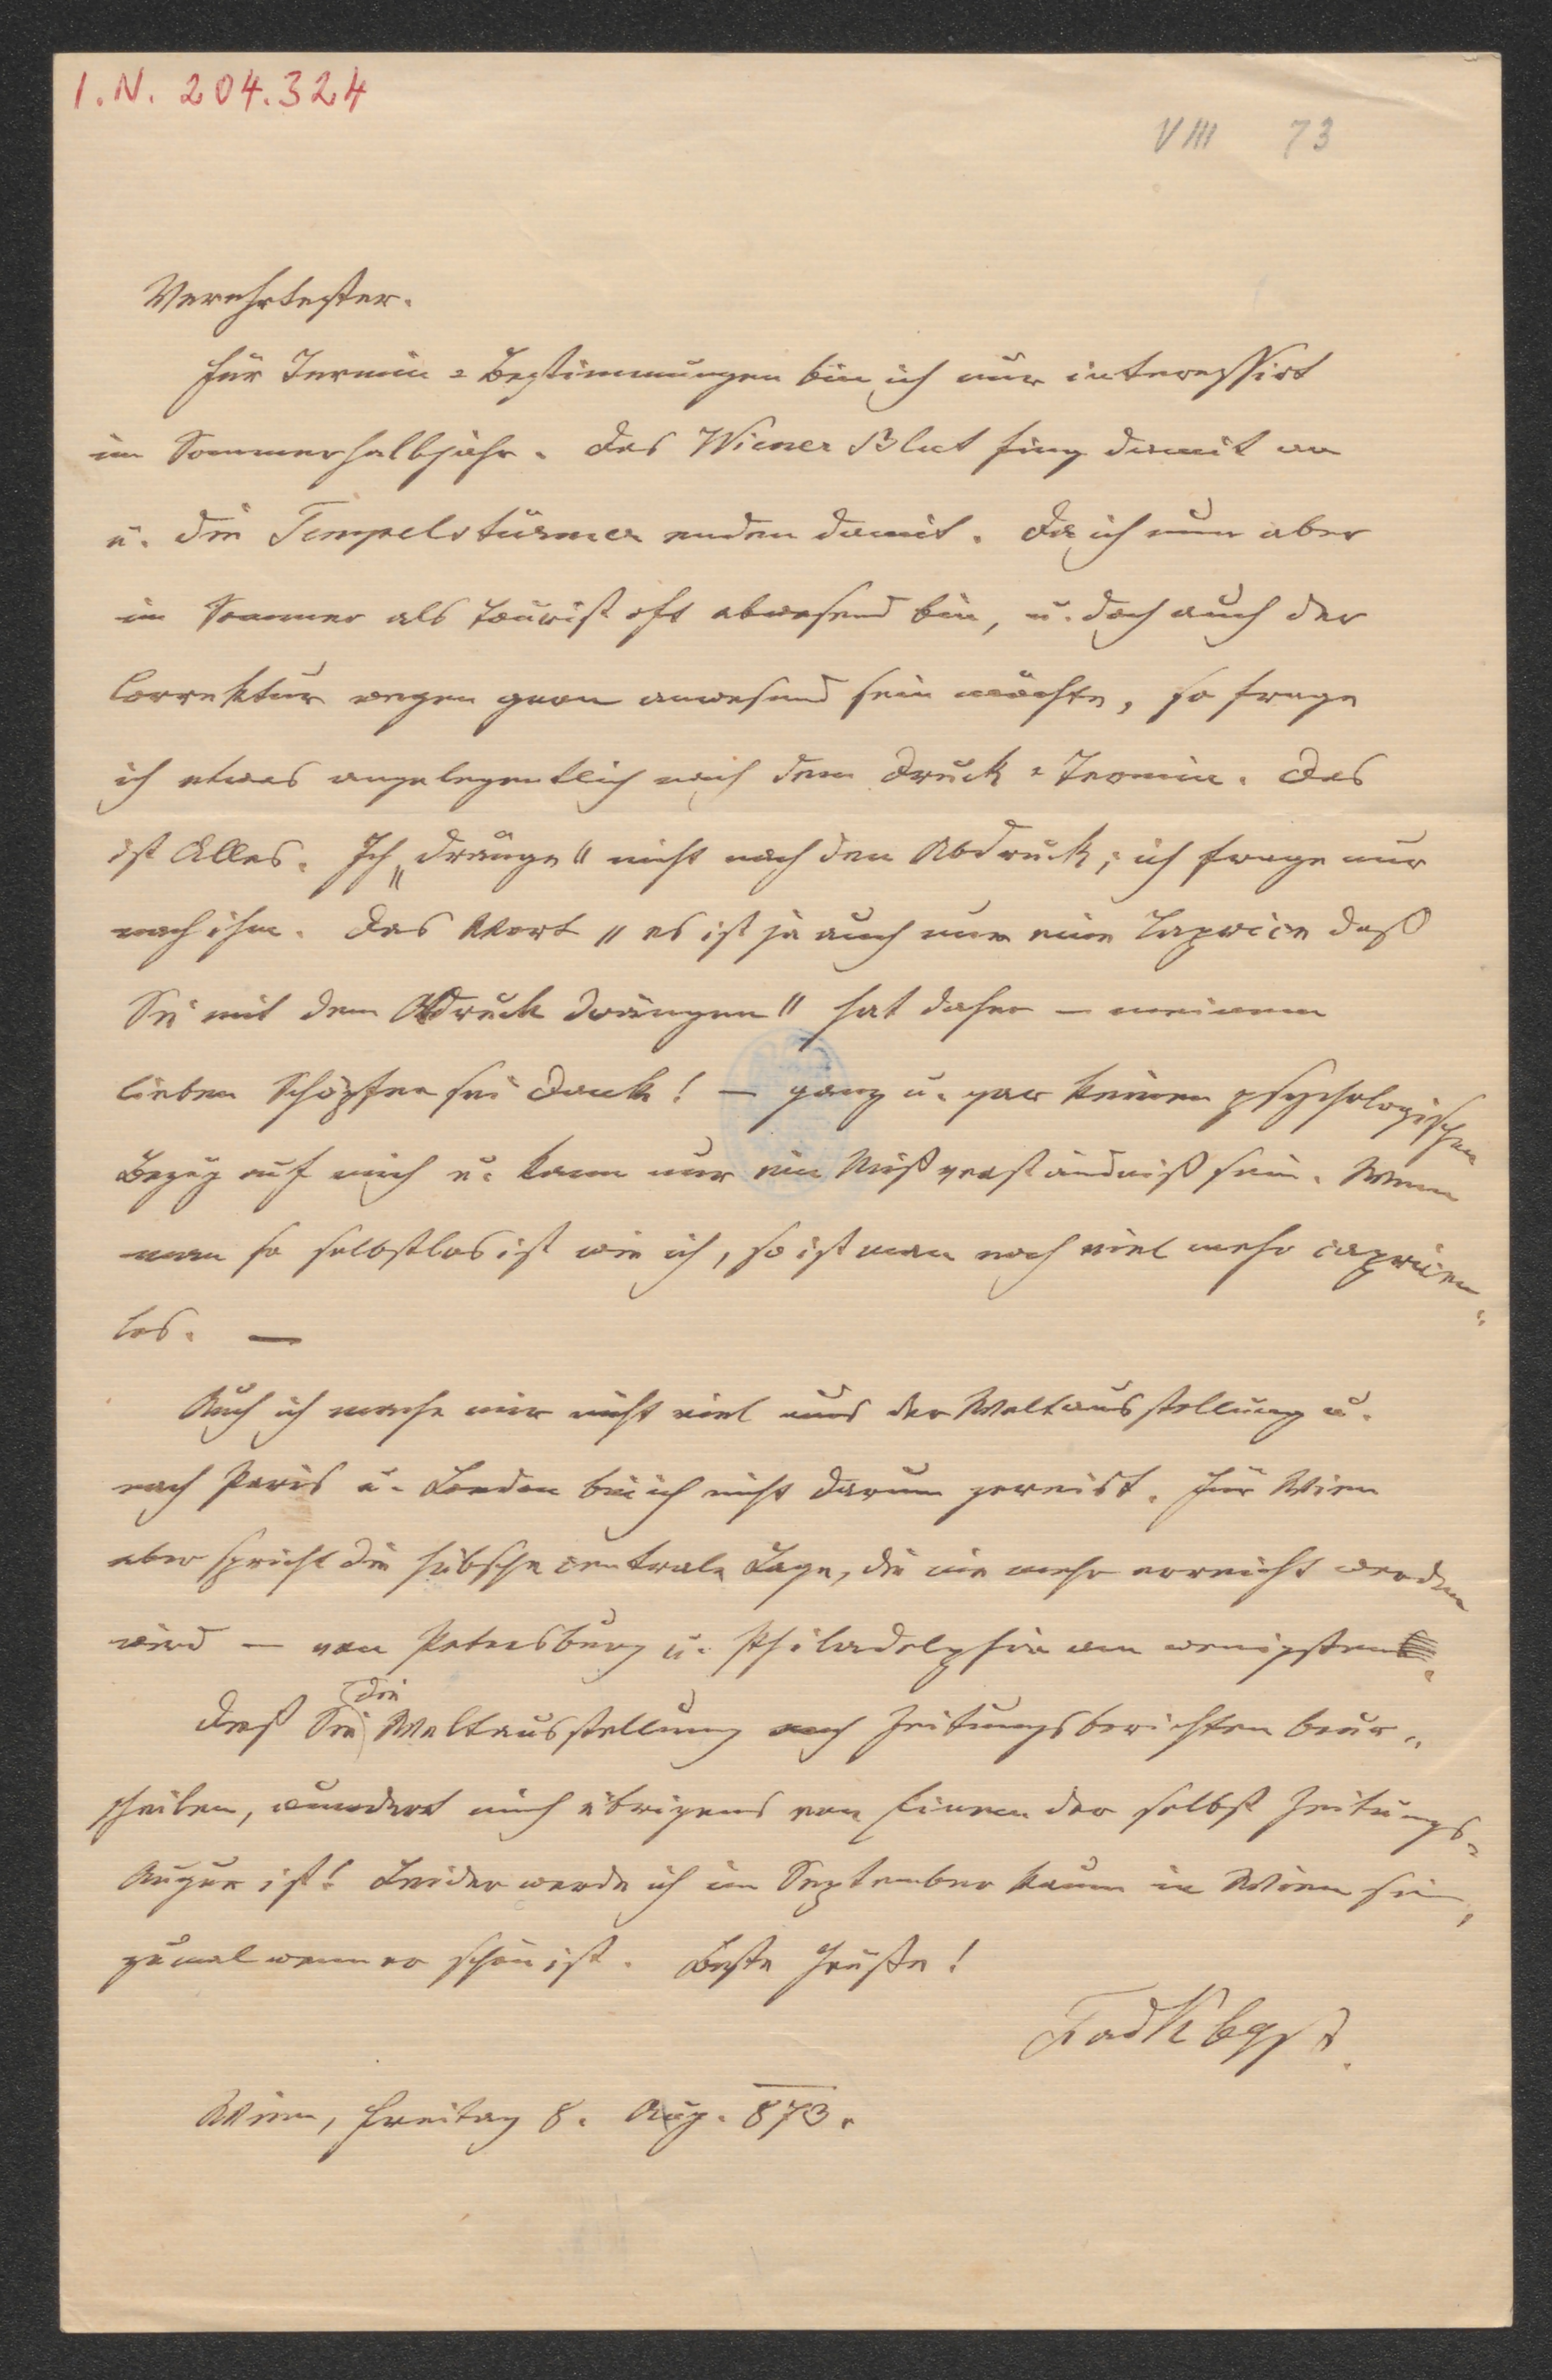 I.N. 204.324
VIII 73
Verehrtester.
Für Termin-Bestimmungen bin ich nur interessirt
im Sommerhalbjahr. Das Wiener Blut fing damit an
u. die Tempelstürmer enden damit. Da ich nun aber
im Sommer als Tourist oft abwesend bin, u. doch auch der
Correktur wegen gern anwesend sein möchte, so frage
ich etwas angelegentlich nach dem Druck-Termin. Das
ist Alles. Ich „dränge" nicht nach den Abdruck; ich frage nur
nach ihm. Das Wort „es ist ja auch nur eine Caprice daß
Sie mit dem Abdruck drängen" hat daher — meinem
lieben Schöpfer sei Dank! — ganz u. gar keinen psychologischen
Bezug auf mich u. kann nur ein Mißverständniß sein. Wenn
man so selbstlos ist wie ich, so ist man noch viel mehr capricen-
los. —
Auch ich mache mir nicht viel aus der Weltausstellung u.
nach Paris u. London bin ich nicht darum gereist. Für Wien
aber spricht die hübsche centrale Lage, die nie mehr erreicht werden
wird — von Petersburg u. Philadelphia am wenigsten.
Daß Sie die Weltausstellung nach Zeitungsberichten beur-
theilen, wundert mich übrigens von Einem der selbst Zeitungs-
Augur ist! Leider werde ich im September kaum in Wien sein,
zumal wenn er schön ist. Beste Grüße!
FadKbgst.
Wien, Freitag 8. Aug. 873.